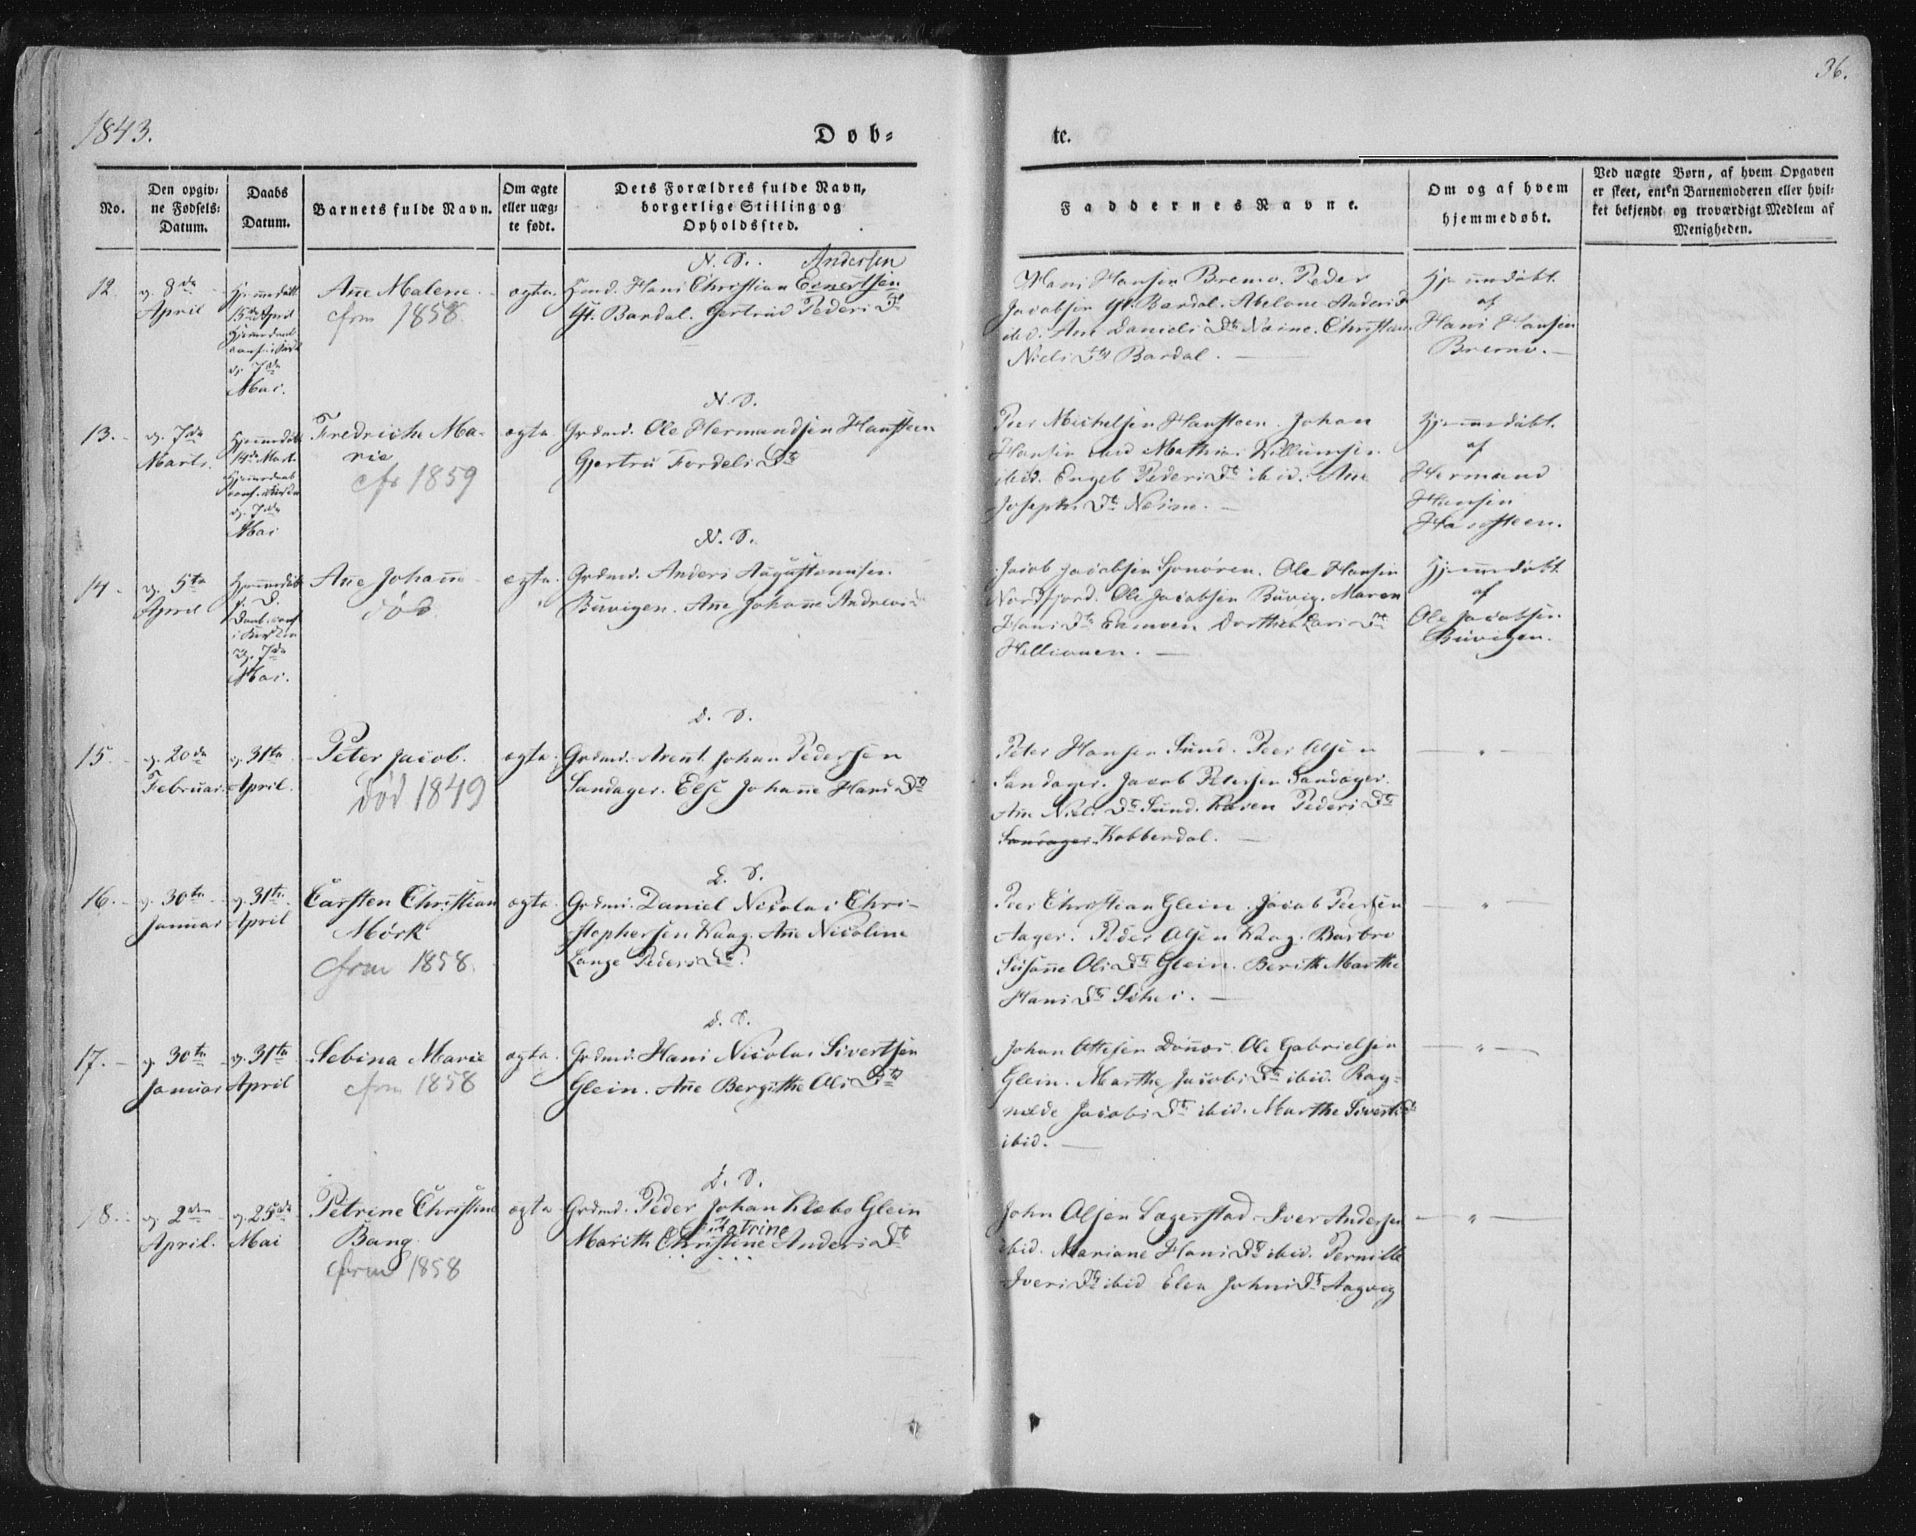 1843.
Døb-
te.
36.
No.
Den opgiv-
ne Fødsels-
Datum.
Daabs
Datum.
Barnets fulde Navn.
Om ægte
eller uæg-
te født.
Dets Forældres fulde Navn,
borgerlige Stilling og
Opholdssted.
Faddernes Navne.
Om og af hvem
hjemmedøbt.
Ved uægte Børn, af hvem Opgaven
er skeet, enten Barnemoderen eller hvil-
ket bekjendt og troværdigt Medlem af
Menigheden.
12.
d. 8de
April
Hjemmedøbt
15de April
d. 7de
Mai.
Ane Malene
cfrm 1858
ægte
N. S. Andersen
Hans Christian Einertsen
Bardal. Gertrud Peders Dt
Hans Hansen Bremo. Peder
Jacobsen Bardal. Abelone Anders D
ibid. Ane Daniels Dt Christian
Niels Dt Bardal. —
Hjemmedøbt
af
Hans Hansen
Bremo. —
13. -
d. 7de
Marts.
Hjemmedøbt
14de Marts
d. 7de
Mai
Fredrich Ma-
rie
cfr 1859
ægte
N. S.
Grdmd. Ole Hermandsen Hansteen
Gjertru Fordels Dt
Peer Michelsen Hansteen. Johan
Hansen
ibid. Engel Peders Dt ibid. Ane
Josephs Dt —
Hjemmedøbt.
af
Hermand
Hansen
Hansteen.
14. -
d. 5te
April
Hjemmedøbt
d. 7de
Mai.
Ane Johane
død
ægte.
N. S.
Grdmd. Anders Augustinusen
Buvigen. Ane Johane Andreas
Jacob Jacobsen Ole Hansen
Nordfjord. Ole Jacobsen Buvig. Maren
Hans Dt Dorthea Lars Dt
—
Hjemmedøbt.
af
Ole Jacobsen
Buvigen.
15.
d. 20de
Februar.
d. 31te
April.
Peter Jacob.
død 1849
ægte.
D. S.
Grdmd. Arent Johan Pedersen
Sandager. Else Johane Hans Dt
Peter Hansen Sund. Peer Olsen
Sandager. Jacob Petersen Sandager.
Ane Niels Dt Sund. Karen Peders Dt
Sandager. Kobberdal. —
— " —
16. -
d. 30te
Januar
d. 31te
April
Carsten Christian
Mørk
cfrm 1858.
ægte
D. S.
Grdmd. Daniel Nicolai Chri-
stophersen Kaag. Ane Nicoline
Lange Peders Dt.
Peer Christian Glein. Jacob Peersen
Aager. Peder Olsen Kaag. Barbro
Susanne Ols Dt Glein. Berith Marthe
Hans Dt —
— " —
17. -
d. 30te
Januar
d. 31te
April
Sebina Marie
cfrm 1858
ægte.
D. S.
Grdmd. Hans Nicolai Sivertsen
Glein. Ane Bergithe Ols Dt
Johan Ottesen Dønnes. Ole Gabrielsen
Glein. Marthe Jacobs Dt ibid. Rag-
nilde Jacobs Dt ibid. Marthe Siverts D
ibid. —
— " —
18.
d. 2den
April.
d. 25de
Mai
Petrine Christine
Bang.
cfrm 1858
ægte
D. S.
Grdmd. Peder Johan Klæbo Glein
Catrine
Marith Christine Anders Dt
John Olsen Lagerstad. Iver Andersen
ibid. Mariane Hans Dt ibid. Pernille
Ivers Dt ibid Elen Johns Dt Aagvig
— " —